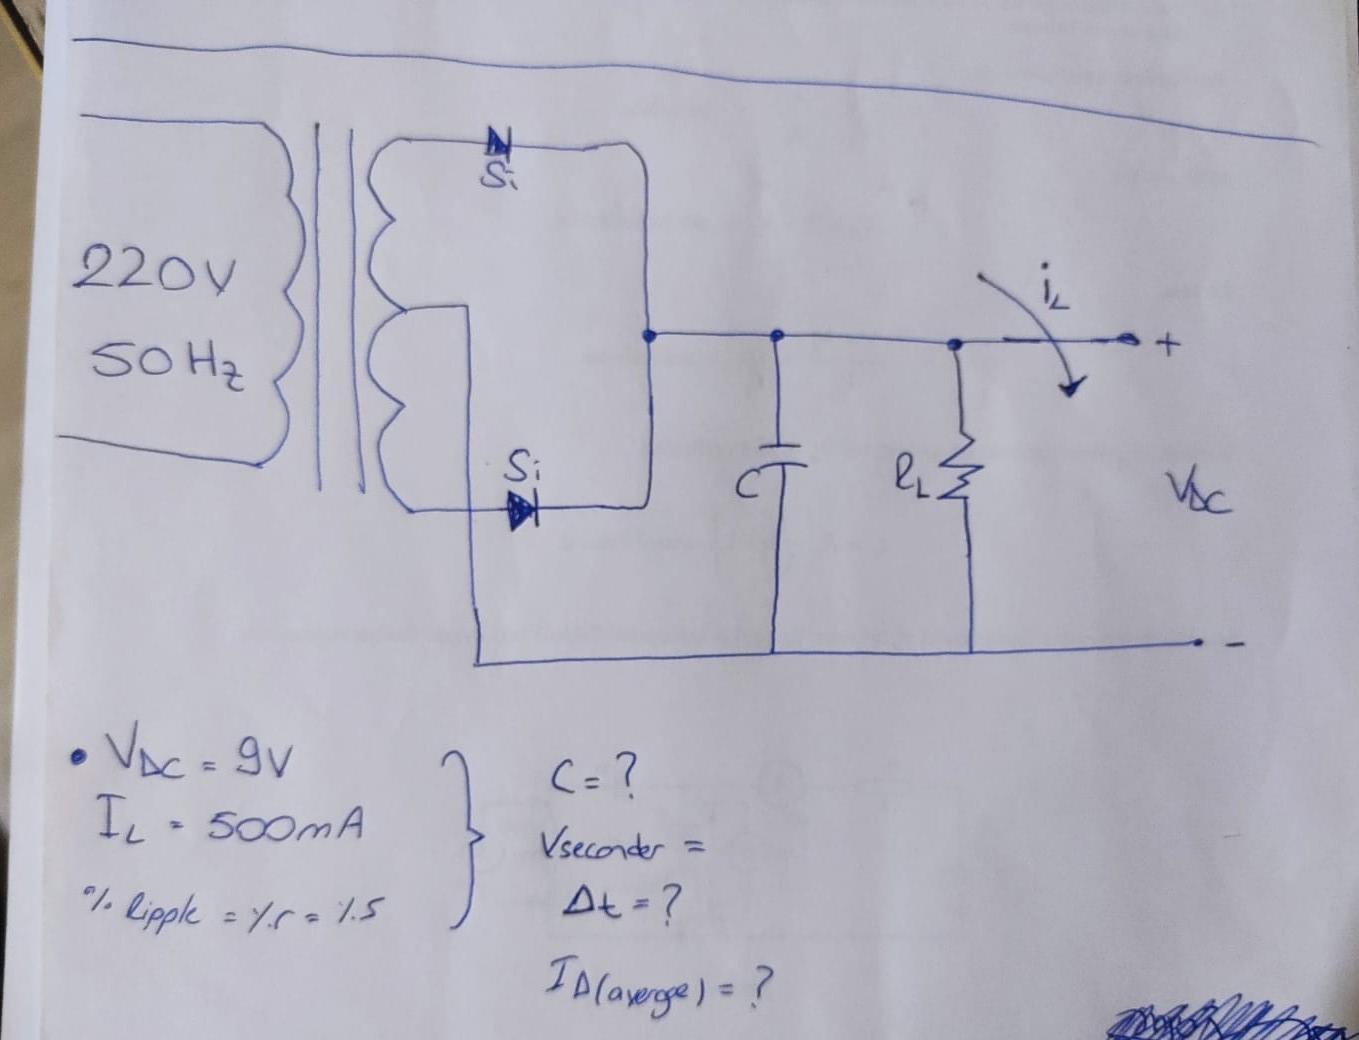 220V
50Hz
Si
Si
iL
+
C
RL
VDC
-
• VDC = 9V
IL = 500mA
% Ripple = %r = %5
C = ?
Vseconder =
Δt = ?
ID(average) = ?